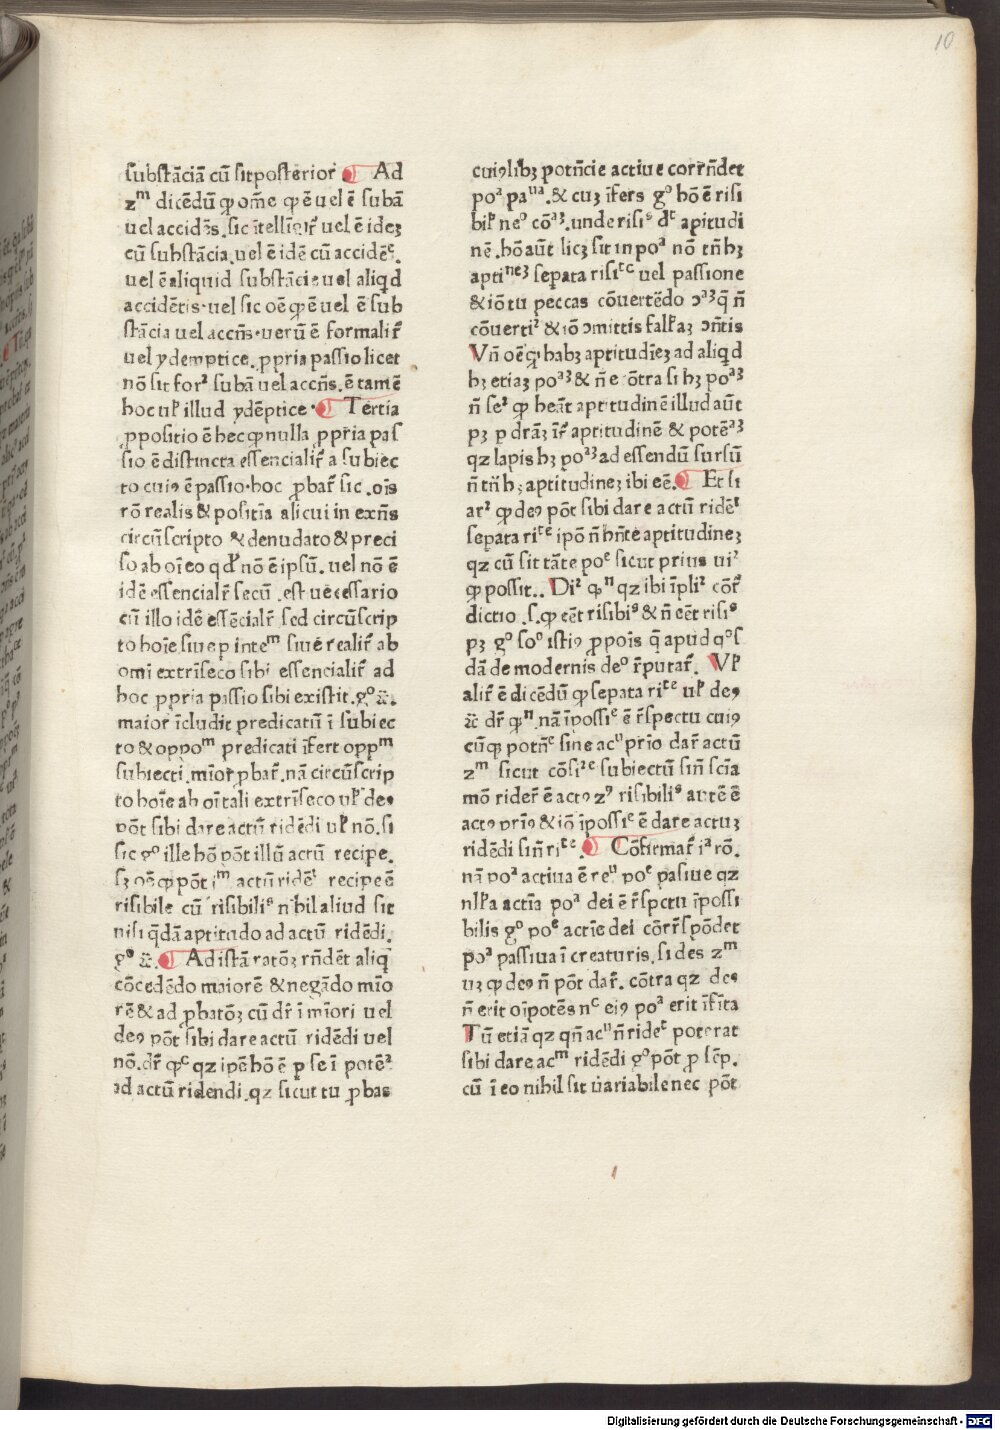 10
substãciã cũ sit posterior̃ ¶ Ad
zᵐ dicẽdũ ꝙ om̃e ꝙ ẽ uel ẽ subã
uel accidẽs. sic ĩtelligĩr̃ uel ẽ ideꝫ
cũ substãcia. uel ẽ idẽ cũ accidẽᵉ.
uel ẽ aliquid substãcie uel aliqd
accidẽtis. uel sic oẽ ꝙ ẽ uel ẽ sub
stãcia uel accñs. uerũ ẽ formalir̃
uel ydemptice. ꝓpria passio licet
nõ sit forᵃ subã uel accñs. ẽ tamẽ
hoc ul̃ illud ydẽptice. ¶ Tertia
ꝓpositio ẽ hec ꝙ nulla ꝓpria pas
sio ẽ distincta essencialir̃ a subiec
to cuiꝰ ẽ passio. hoc ꝓbat̃ sic. oĩs
rõ realis & positĩa alicui in exñs
circũscripto & denudato & preci
so ab oĩ eo qd̃ nõ ẽ ipsũ. uel nõ ẽ
idẽ essencialr̃ secũ. est necessario
cũ illo idẽ essẽcialr̃ sed circũscrip
to hoĩe siue p inteᵐ siue realir̃ ab
omĩ extrĩseco sibi essencialir̃ ad
hoc ꝓpria passio sibi existit. gᵒ &c̃.
maior ĩcludit predicatũ ĩ subiec
to & oppoᵐ predicati ĩfert oppᵐ
subiecti. mĩor ꝓbat̃. nã circũscrip
to hoĩe ab oĩ tali extrĩseco ul̃ deꝰ
põt sibi dare actũ ridẽdi ul̃ nõ. si
sic gᵒ ille hõ põt illũ actũ recipe.
sꝫ oẽ ꝙ põt iᵐ actũ ridẽⁱ recipe ẽ
risibile cũ risibiliˢ nihil aliud sit
nisi q̃dã aptitudo ad actũ ridẽdi.
gᵒ &c̃. ¶ Ad istã ratõꝫ rñdẽt aliq̃
cõcedẽdo maiorẽ & negãdo mĩo
rẽ & ad ꝓbatõꝫ cũ dr̃ ĩ mĩori uel
deꝰ põt sibi dare actũ ridẽdi uel
nõ. dr̃ ꝙᶜ qz ipẽ hõ ẽ p se ĩ potẽᵃ
ad actũ ridendi. qz sicut tu ꝓbas
cuiꝰlibꝫ potñcie actiue corr̃ñdet
poᵃ paᵘᵃ. & cuꝫ ĩfers gᵒ hõ ẽ risi
bil̃ neᵒ cõᵃꝫ. unde risiˢ dᶜ apitudi
nẽ. hõ aũt licꝫ sit in poᵃ nõ tñ hꝫ
aptiⁿᵉꝫ sepata risiᵗᵉ uel passione
& iõ tu peccas cõuertẽdo ɔᵃꝫ q̃ ñ
cõuertiᵗ & iõ ɔmittis fall̃aꝫ ɔñtis
Vñ oẽ ꝙ habꝫ aptitudĩeꝫ ad aliqd
hꝫ etiaꝫ poᵃꝫ & ñ e cõtra si hꝫ poᵃꝫ
ñ seᵗ ꝙ heãt aptitudinẽ illud aũt
pꝫ p dr̃aꝫ ĩr̃ aptitudinẽ & potẽᵃꝫ
qz lapis hꝫ poᵃꝫ ad essendũ sursũ
ñ tñ hꝫ aptitudineꝫ ibi eẽ. ¶ Et si
arᵗ ꝙ deꝰ põt sibi dare actũ ridẽⁱ
sepata riᵗᵉ ipõ ñ hñte aptitudineꝫ
qz cũ sit tãte poᵉ sicut prius uiᵗ
ꝙ possit.. Diᵗ ꝙⁿ qz ibi ĩpliᵗ cõr̃
dictio .s. ꝙ eẽt risibiˢ & ñ eẽt risiˢ
pꝫ gᵒ soᵒ istiꝰ ꝓpoĩs q̃ apud qᵒs
dã de modernis deᵒ r̃putat̃. Vl̃
alit̃ ẽ dicẽdũ ꝙ sepata riᵗᵉ ul̃ deꝰ
&c̃ dr̃ ꝙⁿ. nã ĩpossiᵉ ẽ r̃spectu cuiꝰ
cũꝙ potñᵉ sine acᵘ pr̃io dar̃ actũ
zᵐ sicut cõsiʳᵉ subiectũ siñ scĩa
mõ rider̃ ẽ actꝰ zꝰ risibiliˢ autẽ ẽ
actꝰ prĩꝰ & iõ ĩpossiᵉ ẽ dare actuꝫ
ridẽdi siñ riᵗᵉ. ¶ Cõfirmat̃ iᵃ rõ.
nã poᵃ actiua ẽ reᵘ poᵉ pasiue qz
nll̃a actĩa poᵃ dei ẽ r̃spctu ĩpossi
bilis gᵒ poᵉ actĩe dei cõrr̃spõdet
poᵃ passiua ĩ creaturis. si des zᵐ
uꝫ ꝙ deꝰ ñ põt dar̃. cõtra qz deꝰ
ñ erit oĩpotẽs nᶜ eiꝰ poᵃ erit ĩfĩta
Tũ etiã qz qñ acᵘ ñ rideᵗ poterat
sibi dare acᵐ ridẽdi gᵒ põt ꝓ sẽp.
cũ ĩ eo nihil sit uariabile nec põt
Digitalisierung gefördert durch die Deutsche Forschungsgemeinschaft - DFG